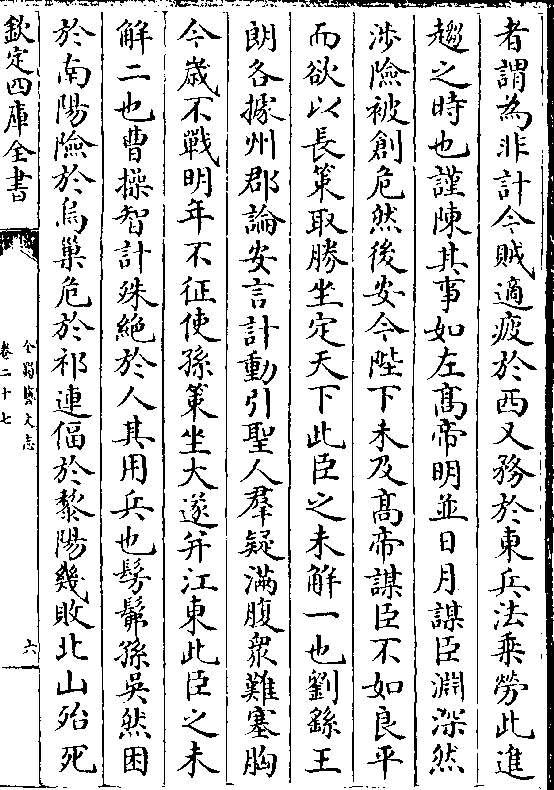 者謂為非計今賊適疲於西又務於東兵法乗勞此進
趨之時也謹陳其事如左髙帝明並日月謀臣淵深然
涉險被創危然後安今陛下未及髙帝謀臣不如良平
而欲以長策取勝坐定天下此臣之未解一也劉繇王
朗各據州郡論安言計動引聖人羣疑滿腹衆難塞胸
今歳不戰明年不征使孫策坐大遂并江東此臣之未
解二也曹操智計殊絶於人其用兵也髣髴孫吳然困
於南陽險於烏巢危於祁連偪於黎陽幾敗北山殆死
欽定四庫全書
全蜀藝文志
卷二十七
六